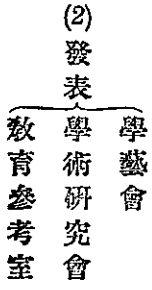 (2)
發表
學藝會
學術硏究會
敎育參考室